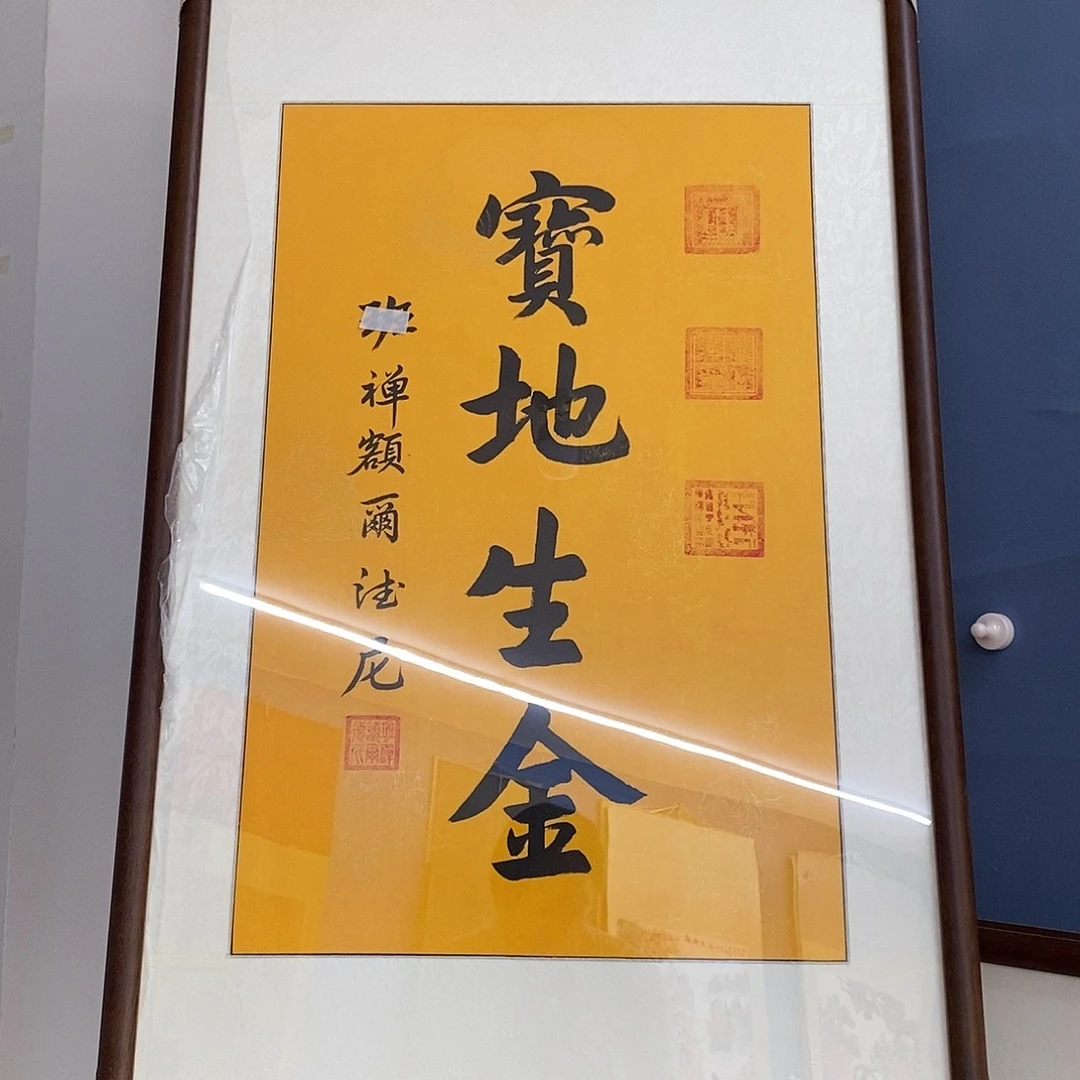 寶地生金
班禅額爾德尼